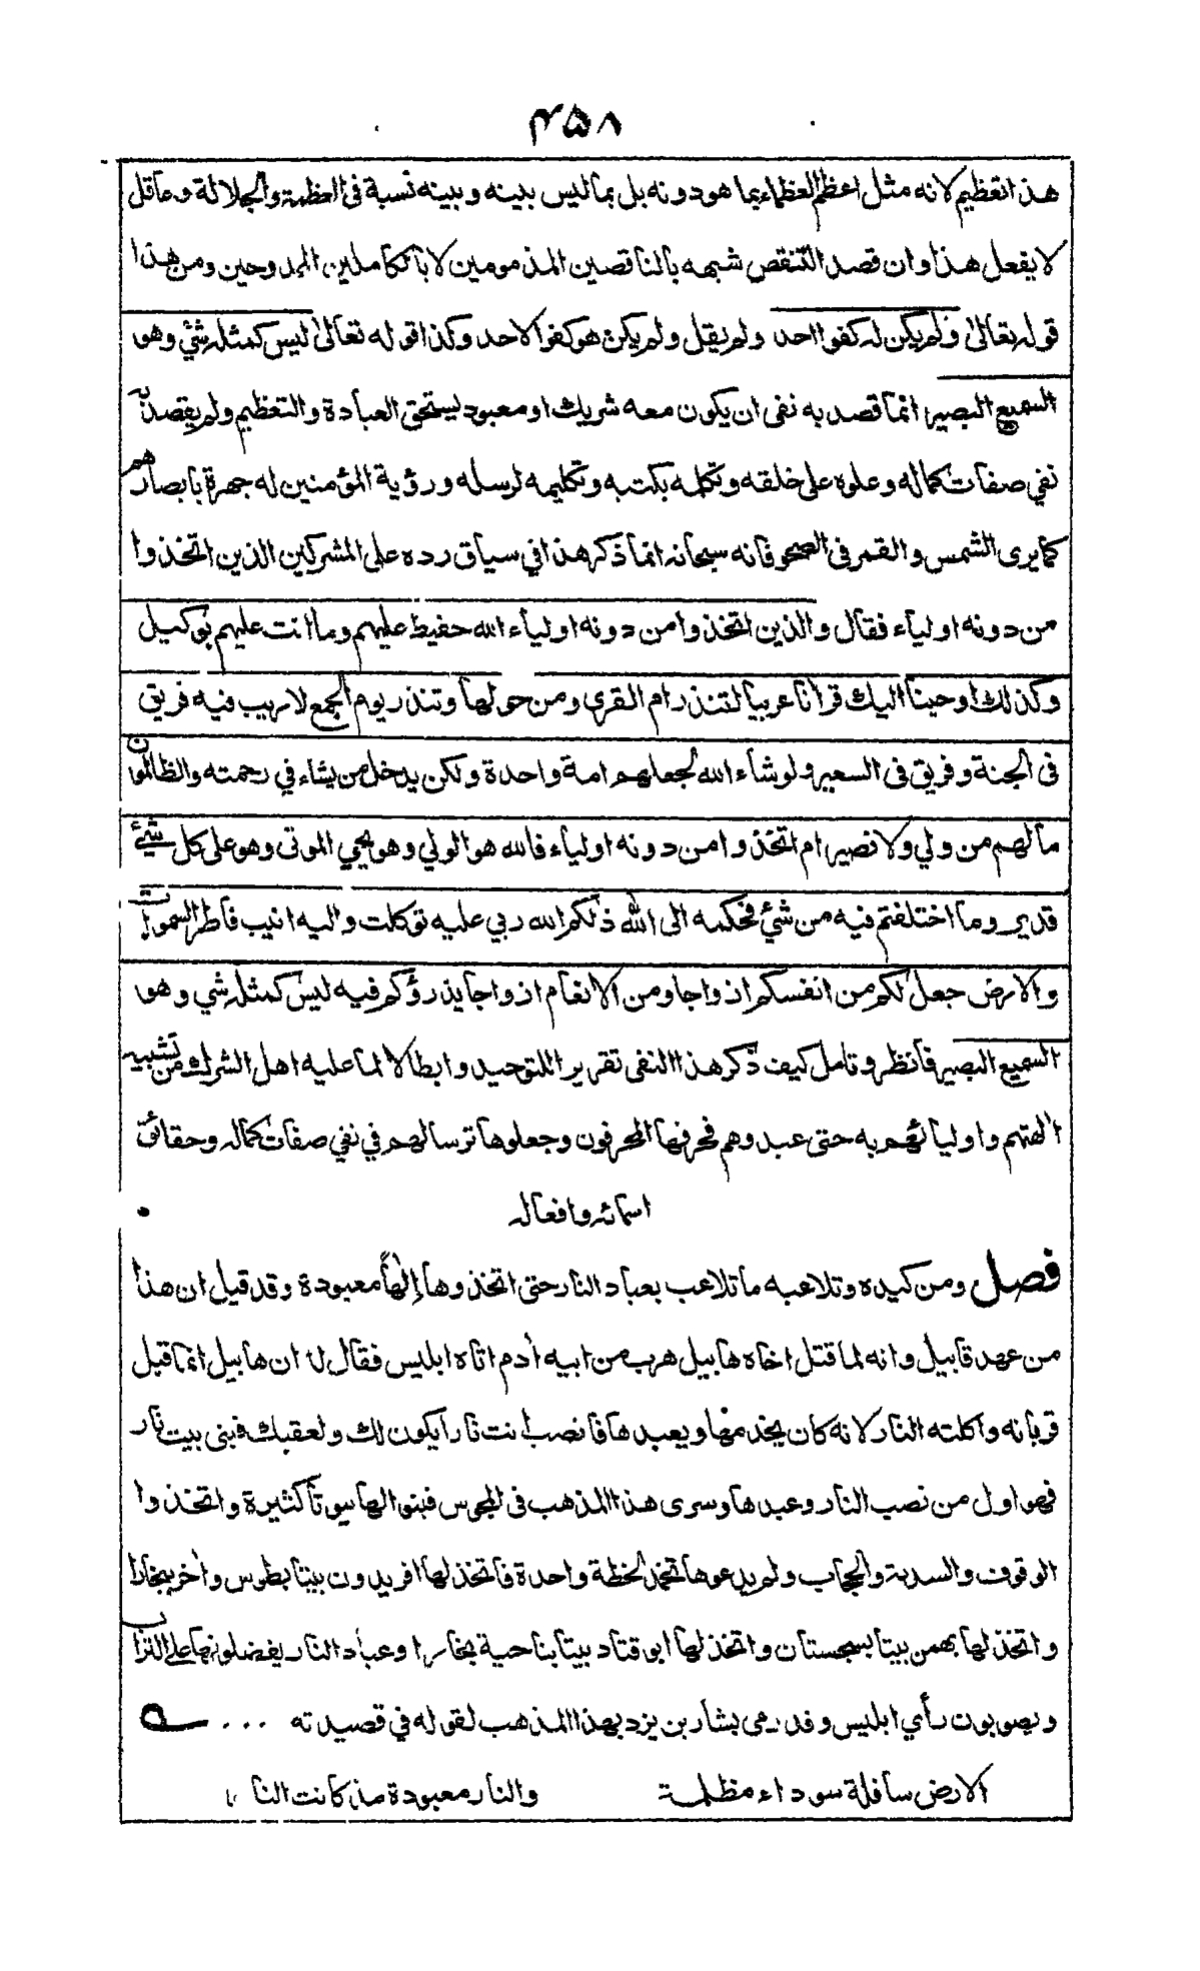 ۴۵۸
هذا تعظيم لانه مثل اعظم العظماء بما هو دونه بل بما ليس بينه وبينه نسبة في العظمة والجلالة وعاقل
لا يفعل هذا وان قصد التنقص شبهه بالناقصين المذمومين لا بالكاملين الممدوحين ومن هذا
قوله تعالى ولم يكن له كفوا احد ولم يقل ولم يكن هو كفوا لاحد وكذا قوله تعالى ليس كمثله شئ وهو
السميع البصير انما قصد به نفى ان يكون معه شريك او معبود يستحق العبادة والتعظيم ولم يقصد به
نفي صفات كماله وعلوه على خلقه وتكلمه بكتبه وتكليمه لرسله ورؤية المؤمنين له جهرة بابصارهم
كما يرى الشمس والقمر في الصحو فانه سبحانه انما ذكر هذا في سياق رده على المشركين الذين اتخذوا
من دونه اولياء فقال والذين اتخذوا من دونه اولياء الله حفيظ عليهم وما انت عليهم بوكيل
وكذلك اوحينا اليك قرانا عربيا لتنذر ام القرى ومن حولها وتنذر يوم الجمع لا ريب فيه فريق
فى الجنة وفريق فى السعير ولو شاء الله لجعلهم امة واحدة ولكن يدخل من يشاء في رحمته والظالمون
ما لهم من ولي ولا نصير ام اتخذوا من دونه اولياء فالله هو الولي وهو يحيي الموتى وهو على كل شيئ
قدير وما اختلفتم فيه من شئ فحكمه الى الله ذلكم الله ربي عليه توكلت واليه انيب فاطر السموات
والارض جعل لكم من انفسكم ازواجا ومن الانعام ازواجا يذرؤكم فيه ليس كمثله شي وهو
السميع البصير فانظر وتامل كيف ذكر هذا النفى تقريرا للتوحيد وابطالا لما عليه اهل الشرك من تشبيه
الهتهم واوليائهم به حتى عبدوهم فحرفها المحرفون وجعلوها ترسا لهم في نفي صفات كماله وحقائق
اسمائه وافعاله
فصل ومن كيده وتلاعبه ما تلاعب بعباد النار حتى اتخذوها إلهاً معبودة وقد قيل ان هذا
من عهد قابيل وانه لما قتل اخاه هابيل هرب من ابيه أدم اتاه ابليس فقال له ان هابيل انما قبل
قربانه واكلته النار لانه كان يخدمها ويعبدها فانصب انت نارا يكون لك ولعقبك فبنى بيت نار
فهو اول من نصب النار وعبدها وسرى هذا المذهب فى المجوس فبنوا لها بيوتاً كثيرة واتخذوا
الوقوف والسدنة والحجاب ولم يدعوها تخمد لحظة واحدة فاتخذ لها افريدون بيتا بطوس وأخر ببخارا
واتخذ لها بهمن بيتا بسجستان واتخذ لها ابو قتاد بيتا بناحية بخارا وعباد النار يفضلونها على التراب
ويصوبون رأي ابليس وقد رمى بشار بن يزد بهذا المذهب لقوله في قصيدته ...
الارض سافلة سوداء مظلمة والنار معبودة مذ كانت النار